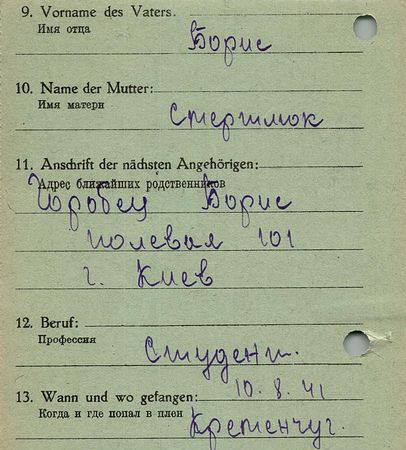 9. Vorname des Vaters.
Имя отца
Борис
10. Name der Mutter:
Имя матери
Стермлюк
11. Anschrift der nächsten Angehörigen:
Адрес ближайших родственников
Горобец Борис
Полевая 101
г. Киев
12. Beruf:
Профессия
Студент.
10.8.41
13. Wann und wo gefangen:
Когда и где попал в плен
Кременчуг.